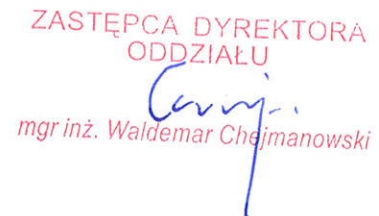 ZASTĘPCA DYREKTORA
ODDZIAŁU
mgr inż. Waldemar Chejmanowski